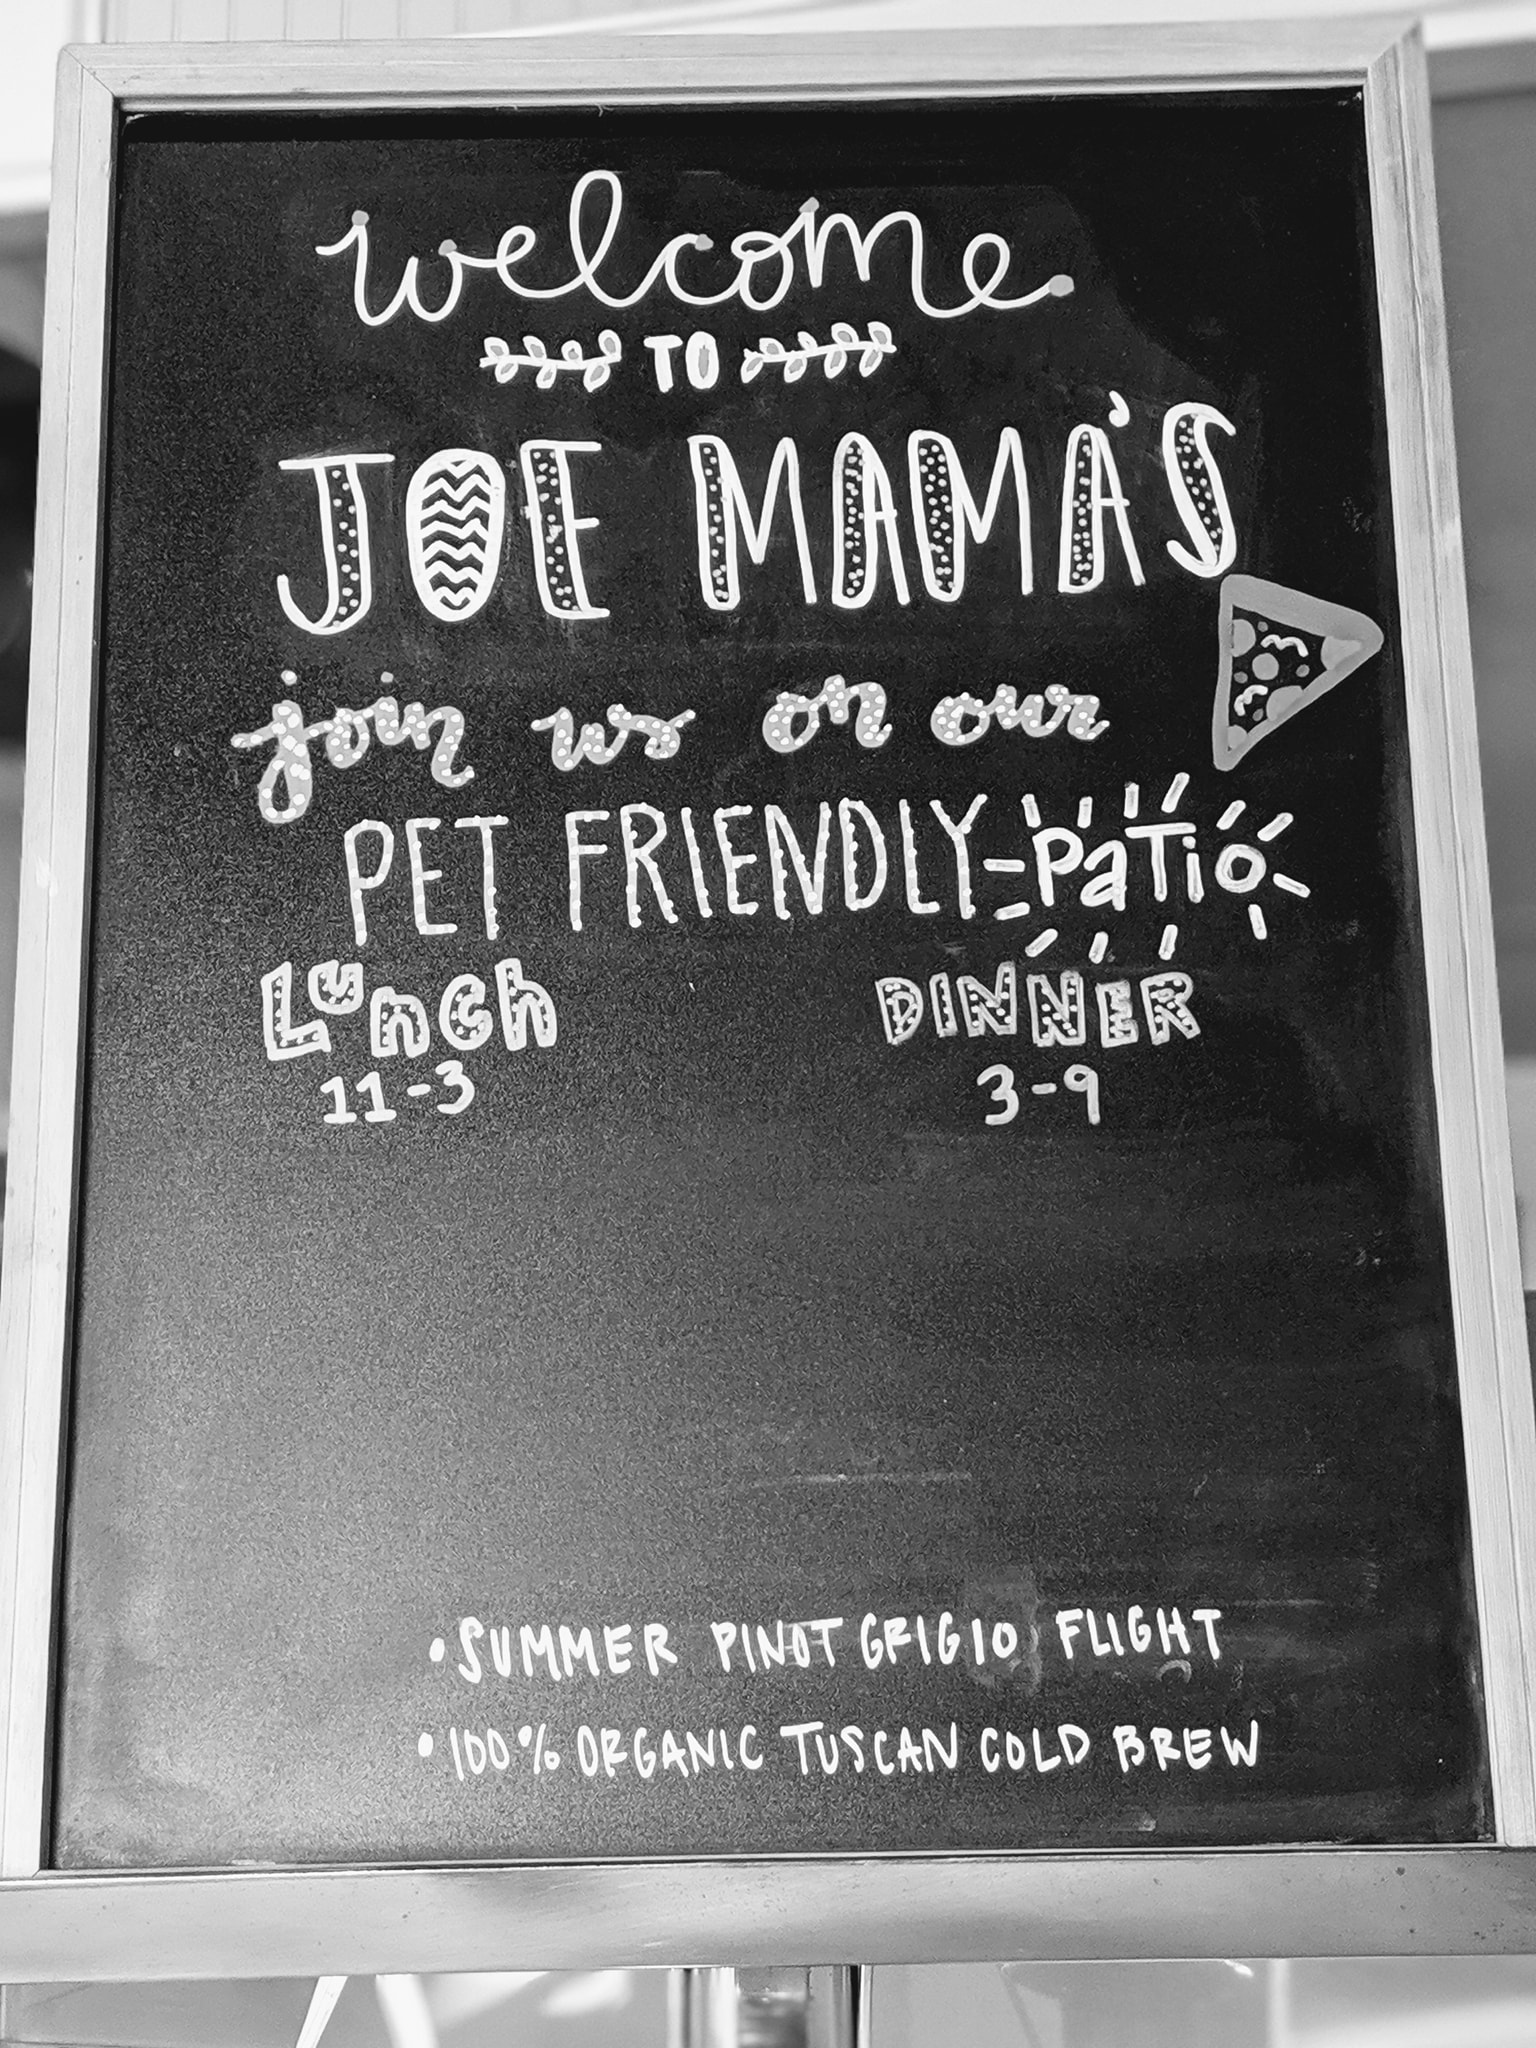 welcome
TO
JOE MAMA'S
join us on our
PET FRIENDLY PaTio
Lunch DINNER
11-3 3-9
• SUMMER PINOT GRIGIO FLIGHT
• 100% ORGANIC TUSCAN COLD BREW